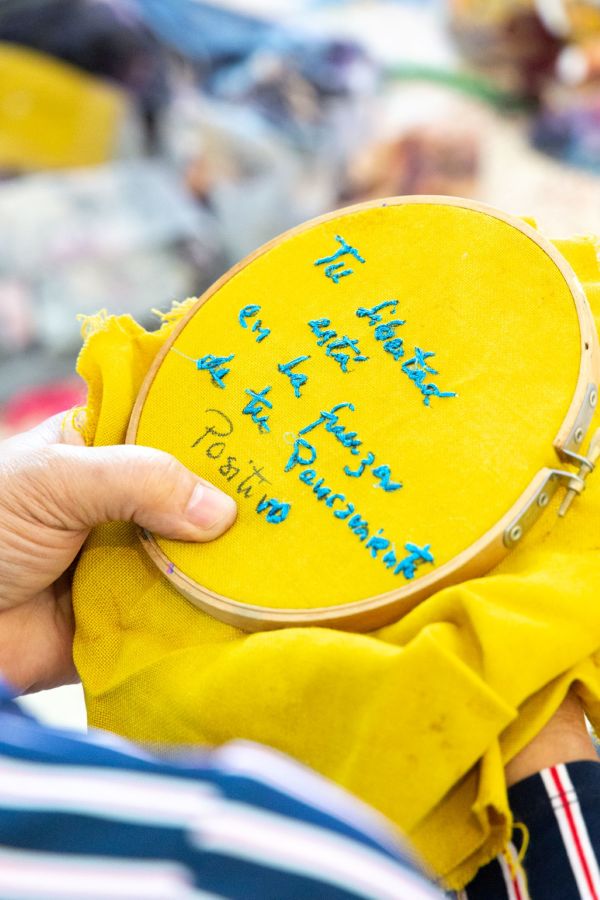 Tu libertad
está
en la fuerza
de tu Pensamiento
Positivo